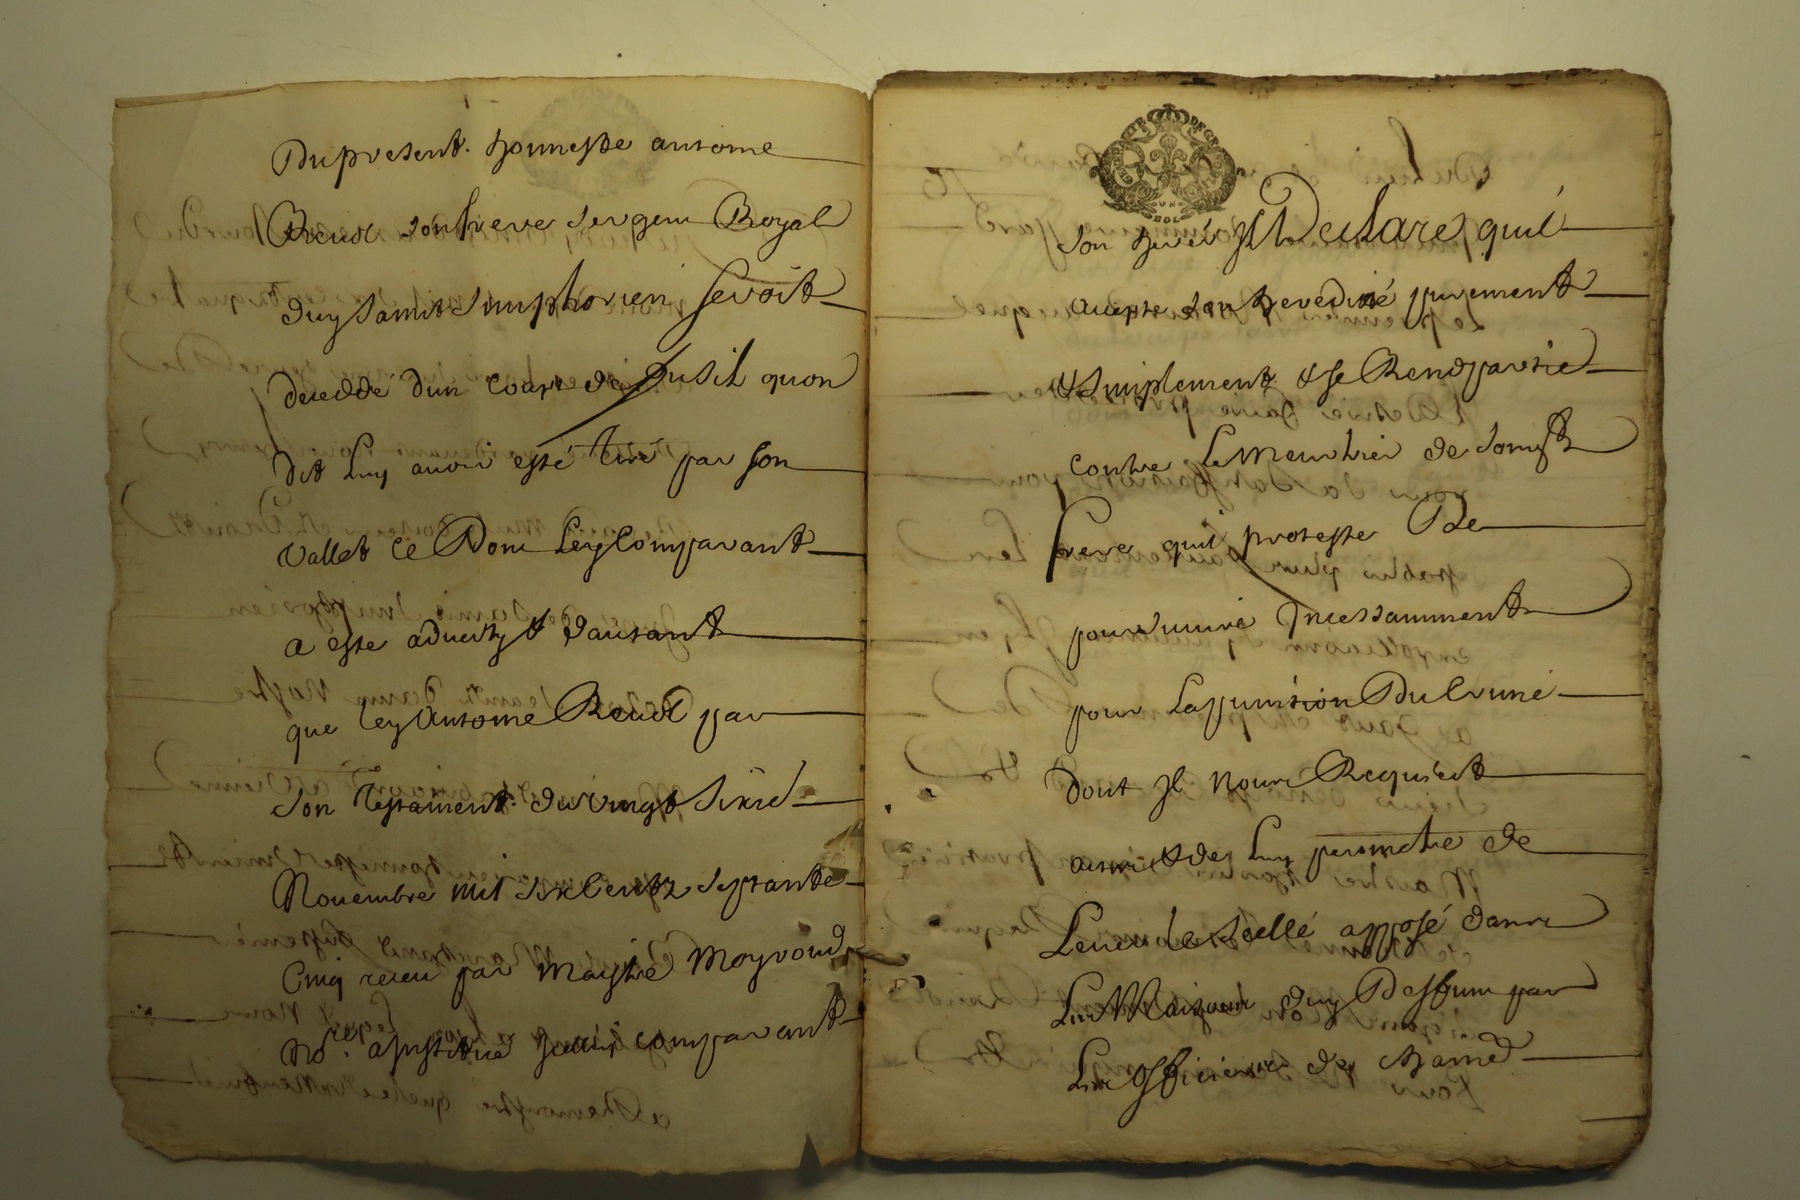 Du present. honneste antoine
Reuol son frere sergent Royal
duy saint simphorien seroit
decedde dun coup de fusil quon
dit luy auoir esté tiré par son
vallet ce Dont ley comparant
a este aduerty & dautant
que ley antoine Reuol par
son testament. du vingt sixie
Nouembre mil six centz septante
Cinq receu par maistre moyroud
no.re a institué ledit comparant
GENERALITE DE GRENOBLE
VN SOL
son heritier Jl Declare quil
accepte son heredité purement
& simplement. & se Rend partie
contre le meurtrier de sondit
frere quil proteste De
poursuiure Incessamment
pour la punision Du Crime
dont Jl nous Requiert
acte & de luy permetre de
Leuer le scellé apposé dans
La Maison duy Deffunt par
Les officiers de